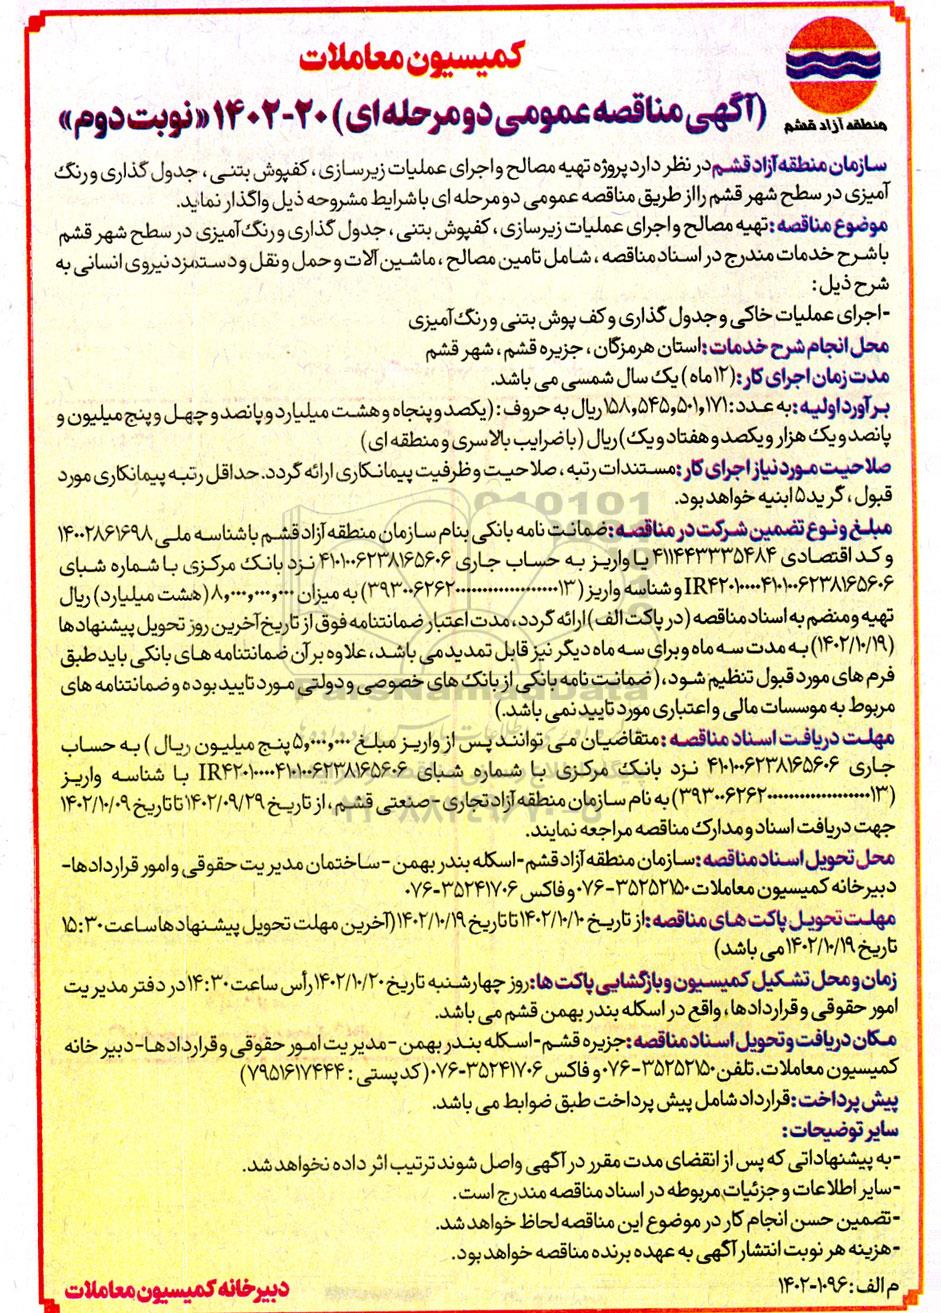 کمیسیون معاملات
(آگهی مناقصه عمومی دو مرحله ای) ۲۰-۱۴۰۲ «نوبت دوم»
منطقه آزاد قشم
سازمان منطقه آزاد قشم در نظر دارد پروژه تهیه مصالح و اجرای عملیات زیرسازی، کفپوش بتنی، جدول گذاری و رنگ
آمیزی در سطح شهر قشم را از طریق مناقصه عمومی دو مرحله ای با شرایط مشروحه ذیل واگذار نماید.
موضوع مناقصه: تهیه مصالح و اجرای عملیات زیرسازی، کفپوش بتنی، جدول گذاری و رنگ آمیزی در سطح شهر قشم
باشرح خدمات مندرج در اسناد مناقصه، شامل تامین مصالح، ماشین آلات و حمل و نقل و دستمزد نیروی انسانی به
شرح ذیل:
-اجرای عملیات خاکی و جدول گذاری و کف پوش بتنی و رنگ آمیزی
محل انجام شرح خدمات: استان هرمزگان، جزیره قشم، شهر قشم
مدت زمان اجرای کار: (۱۲ ماه) یک سال شمسی می باشد.
برآورد اولیه: به عدد: ۱۵۸,۵۴۵,۵۰۱,۱۷۱ ریال به حروف: (یکصد و پنجاه و هشت میلیارد و پانصد و چهل و پنج میلیون و
پانصد و یک هزار و یکصد و هفتاد و یک) ریال (با ضرایب بالاسری و منطقه ای)
صلاحیت مورد نیاز اجرای کار: مستندات رتبه، صلاحیت و ظرفیت پیمانکاری ارائه گردد. حداقل رتبه پیمانکاری مورد
قبول، گرید ۵ ابنیه خواهد بود.
مبلغ و نوع تضمین شرکت در مناقصه: ضمانت نامه بانکی بنام سازمان منطقه آزاد قشم با شناسه ملی ۱۴۰۰۲۸۶۱۶۹۸
و کد اقتصادی ۴۱۱۱۴۴۳۳۳۵۴۸۴ یا واریز به حساب جاری ۴۱۰۱۰۰۶۲۳۸۱۶۵۶۰۶ نزد بانک مرکزی با شماره شبای
و شناسه واریز به میزان ۸,۰۰۰,۰۰۰,۰۰۰ (هشت میلیارد) ریال
تهیه و منضم به اسناد مناقصه (در پاکت الف) ارائه گردد، مدت اعتبار ضمانتنامه فوق از تاریخ آخرین روز تحویل پیشنهادها
(۱۴۰۲/۱۰/۱۹) به مدت سه ماه و برای سه ماه دیگر نیز قابل تمدید می باشد، علاوه بر آن ضمانتنامه های بانکی باید طبق
فرم های مورد قبول تنظیم شود، (ضمانت نامه بانکی از بانک های خصوصی و دولتی مورد تایید بوده و ضمانتنامه های
مربوط به موسسات مالی و اعتباری مورد تایید نمی باشد.)
مهلت دریافت اسناد مناقصه: متقاضیان می توانند پس از واریز مبلغ ۵,۰۰۰,۰۰۰ پنج میلیون ریال) به حساب
جاری ۴۱۰۱۰۰۶۲۳۸۱۶۵۶۰۶ نزد بانک مرکزی با شماره شبای با شناسه واریز
به نام سازمان منطقه آزاد تجاری - صنعتی قشم، از تاریخ ۱۴۰۲/۰۹/۲۹ تا تاریخ ۱۴۰۲/۱۰/۰۹
جهت دریافت اسناد و مدارک مناقصه مراجعه نمایند.
محل تحویل اسناد مناقصه: سازمان منطقه آزاد قشم - اسکله بندر بهمن - ساختمان مدیریت حقوقی و امور قراردادها -
دبیرخانه کمیسیون معاملات ۳۵۲۵۲۱۵۰-۰۷۶ و فاکس ۳۵۲۴۱۷۰۶-۰۷۶
مهلت تحویل پاکت های مناقصه: از تاریخ ۱۴۰۲/۱۰/۱۰ تا تاریخ ۱۴۰۲/۱۰/۱۹ (آخرین مهلت تحویل پیشنهادها ساعت ۱۵:۳۰
تاریخ ۱۴۰۲/۱۰/۱۹ می باشد)
زمان و محل تشکیل کمیسیون و بازگشایی پاکت ها: روز چهارشنبه تاریخ ۱۴۰۲/۱۰/۲۰ رأس ساعت ۱۴:۳۰ در دفتر مدیریت
امور حقوقی و قراردادها، واقع در اسکله بندر بهمن قشم می باشد.
مکان دریافت و تحویل اسناد مناقصه: جزیره قشم - اسکله بندر بهمن - مدیریت امور حقوقی و قراردادها - دبیر خانه
کمیسیون معاملات. تلفن ۳۵۲۵۲۱۵۰-۰۷۶ و فاکس ۳۵۲۴۱۷۰۶-۰۷۶ (کد پستی: ۷۹۵۱۶۱۷۴۴۴)
پیش پرداخت: قرارداد شامل پیش پرداخت طبق ضوابط می باشد.
سایر توضیحات:
-به پیشنهاداتی که پس از انقضای مدت مقرر در آگهی واصل شوند ترتیب اثر داده نخواهد شد.
-سایر اطلاعات و جزئیات مربوطه در اسناد مناقصه مندرج است.
-تضمین حسن انجام کار در موضوع این مناقصه لحاظ خواهد شد.
-هزینه هر نوبت انتشار آگهی به عهده برنده مناقصه خواهد بود.
م الف: ۱۰۹۶-۱۴۰۲
دبیرخانه کمیسیون معاملات